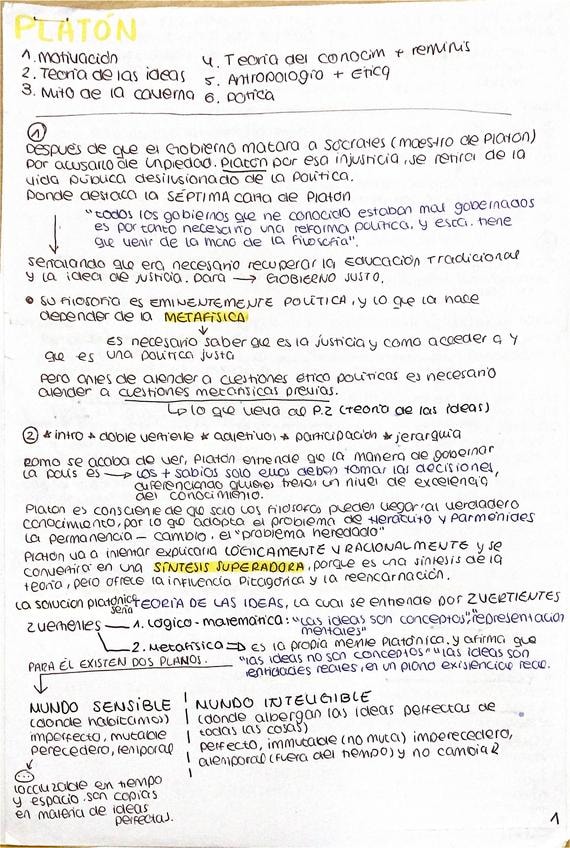 PLATÓN
1. Motivación
2. Teoría de las ideas
3. Mito de la caverna
4. Teoría del conocim + reminis
5. Antropología + Ética
6. Política
1
Después de que el Gobierno matara a Sócrates (maestro de Platón)
por acusarlo de impiedad. Platón por esa injusticia, se retira de la
vida pública desilusionado de la política.
Donde destaca la SÉPTIMA carta de Platón
"todos los gobiernos que he conocido estaban mal gobernados
es por tanto necesario una reforma política, y esta tiene
que venir de la mano de la filosofía".
señalando que era necesario recuperar la EDUCACIÓN TRADICIONAL
y la idea de justicia. para → GOBIERNO JUSTO.
• su filosofía es EMINENTEMENTE POLÍTICA, y lo que la hace
depender de la METAFÍSICA
Es necesario saber que es la justicia y como acceder a y
que es una política justa
Pero antes de atender a cuestiones ético políticas es necesario
atender a cuestiones metafísicas previas.
↳ lo que lleva al P.2 (teoría de las ideas)
2 * intro * doble vertiente * adjetivos * participación * jerarquía
como se acaba de ver, Platón entiende que la manera de gobernar
la polis es → los + sabios solo ellos deben tomar las decisiones,
diferenciando quienes tienen un nivel de excelencia
del conocimiento.
Platón es consciente de que solo los filósofos pueden llegar al verdadero
conocimiento, por lo que adopta el problema de Heráclito y Parménides
la permanencia - cambio, el "problema heredado"
Platón va a intentar explicarla LÓGICAMENTE Y RACIONALMENTE y se
convertirá en una SÍNTESIS SUPERADORA, porque es una síntesis de la
teoría, pero ofrece la influencia Pitagórica y la reencarnación.
La solución platónica sería TEORÍA DE LAS IDEAS, la cual se entiende por 2 VERTIENTES
2 vertientes 1. Lógico-matemática: "las ideas son conceptos", "representación
mentales"
2. Metafísica ⇒ es la propia mente Platónica, y afirma que
"las ideas no son conceptos" "las ideas son
entidades reales, en un plano existencial real.
PARA ÉL EXISTEN DOS PLANOS.
MUNDO SENSIBLE
(donde habitamos)
imperfecto, mutable
perecedero, temporal
localizable en tiempo
y espacio. son copias
en materia de ideas
perfectas.
MUNDO INTELIGIBLE
(donde albergan las ideas perfectas de
todas las cosas)
perfecto, inmutable (no muta) imperecedero,
atemporal (fuera del tiempo) y no cambia
1